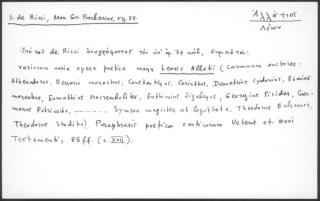 S. de Ricci, Man. Gr. Barberini, σχ. 88.
Ἀλλάτιος
Λέων
variorum nova opera poetica manu Leonis Allatii (Carminum auctores:
Athenodorus, Bessario monachus, Constantinus, Corinthus, Demetrius Cydonius,
monachus, Eumathius Macrembolites, Euthimius Zigabenus, Georgius Pisides, Ger-
manus Patriarcha, .......... Symeon magister et logotheta, Theodorus Balsamon,
Theodorus Studita), Paraphrasis poetica canticorum Veteris et Novi
Testamenti, 85 ff. (s. XVII).